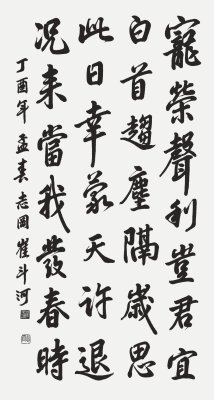 寵榮聲利豈君宜
白首趨塵隔歲思
此日幸蒙天許退
況来當我發春時
丁酉年孟春志岡崔斗河